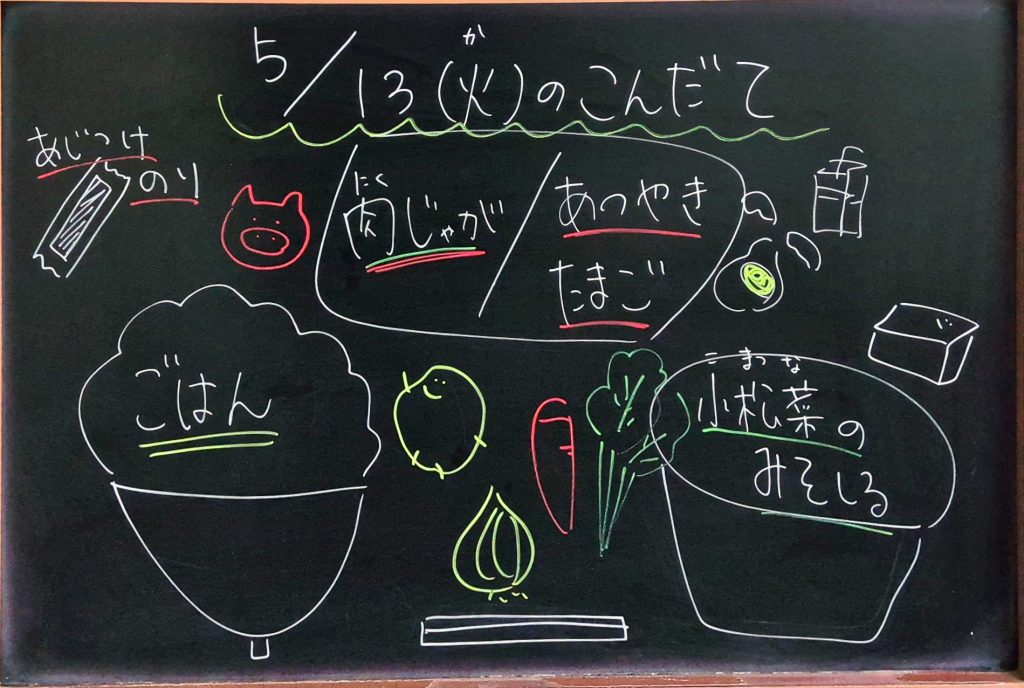 5/13(火)のこんだて
か
あじつけ
のり
にく
肉じゃが
あつやき
たまご
ごはん
こまつな
小松菜の
みそしる